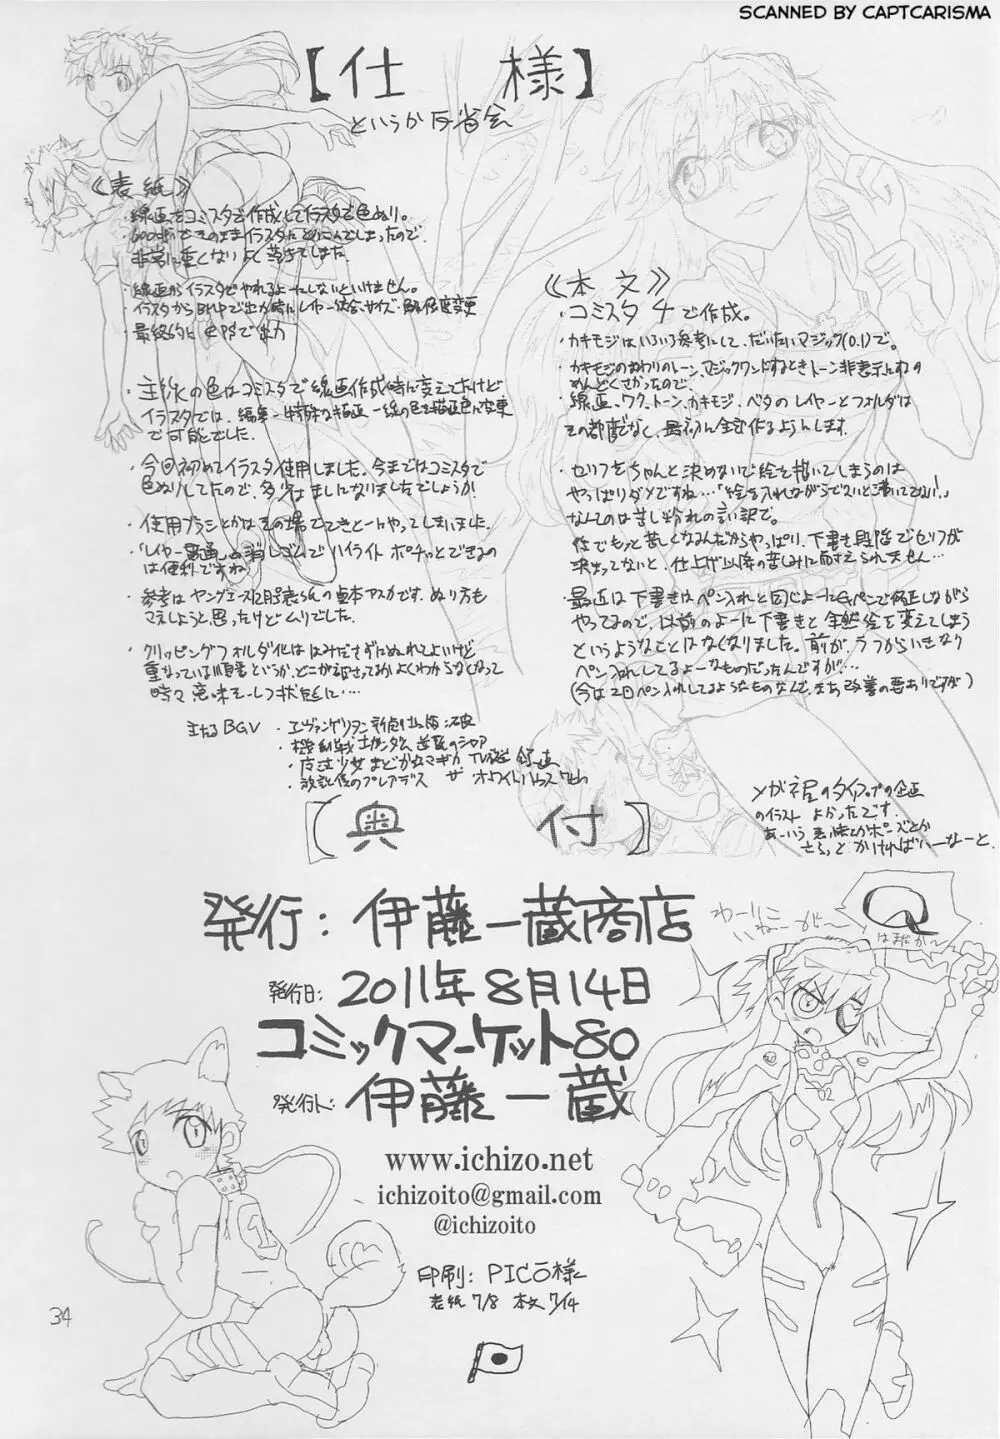 SCANNED BY CAPTCARISMA
【仕 様】
というか反省会
《表紙》
・線画をコミスタで作成してイラスタで色ぬり。
600dpiでそのままイラスタに
非常に重くない
・線画からイラスタでやれるよーにしないといけません。
・イラスタからBMPで出力時にレイヤー統合、サイズ・解像度変更
・最終的に EPSで出力
・主線の色はコミスタで線画作成時に変えてたけど
イラスタでは、編集→特殊な描画→線の色を描画色に変更
で可能でした。
・今回初めてイラスタ使用しました。今まではコミスタで
色ぬりしてたので、多少はましになりましたでしょうか?
・使用ブラシとかはその場でてきとーにやってしまいました。
・「レイヤー貫通」の消しゴムでハイライト ポチッとできるの
は便利ですね
・参考はヤングエース2月号表紙の貞本アスカです。ぬり方も
マネしようと思ったけどムリでした。
・クリッピングフォルダ化ははみださずにぬれてよいけど
重なっている順番というか、どこが
時々意味ネーレフ状態に…
主なるBGV ・エヴァンゲリヲン新劇場版:破
・機動戦士ガンダム 逆襲のシャア
・魔法少女まどか☆マギカ TV放送
・放課後のプレアデス ザ・ホワイトハウス
《本文》
・コミスタ4で作成。
・カキモジはいろいろ参考にして、だいたいマジック(0.1)で。
・カキモジのまわりのトーン、マジックワンドするときトーン非表示にするの
めんどくさかったので、
線画、ワク、トーン、カキモジ、ベタのレイヤーとフォルダは
その都度でなく、最初に全部作るようにします。
・セリフをちゃんと決めないで絵を描いてしまうのは
やっぱりダメですね…「絵を入れながらでないと湧いてこない!」
なんてのは苦し紛れの言い訳で。
後でもっと苦しくなるんだからやっぱり、下書き段階でセリフが
決まってないと、仕上げ以降の苦しみに耐えられません…
・最近は下書きはペン入れと同じよーにGペンで修正しながら
やってるので、以前のように下書きと全然絵を変えてしまう
というようなことはなくなりました。前が、ラフからいきなり
ペン入れしてるよーなものだったんですが…
(今は2回ペン入れしてるようなものなんで、まだ改善の要ありですが)
メガネ屋のタイアップの企画
のイラスト よかったです。
あーいう表情とかポーズとか
さらっと かければいーなーと。
【奥 付】
発行:伊藤一蔵商店
発行日: 2011年8月14日
コミックマーケット80
発行人: 伊藤一蔵
www.ichizo.net
ichizoito@gmail.com
@ichizoito
印刷: PICO様
表紙 7/8 本文 7/14
わー!!こ
いねーがー
Q
はまだかー
02
1
34